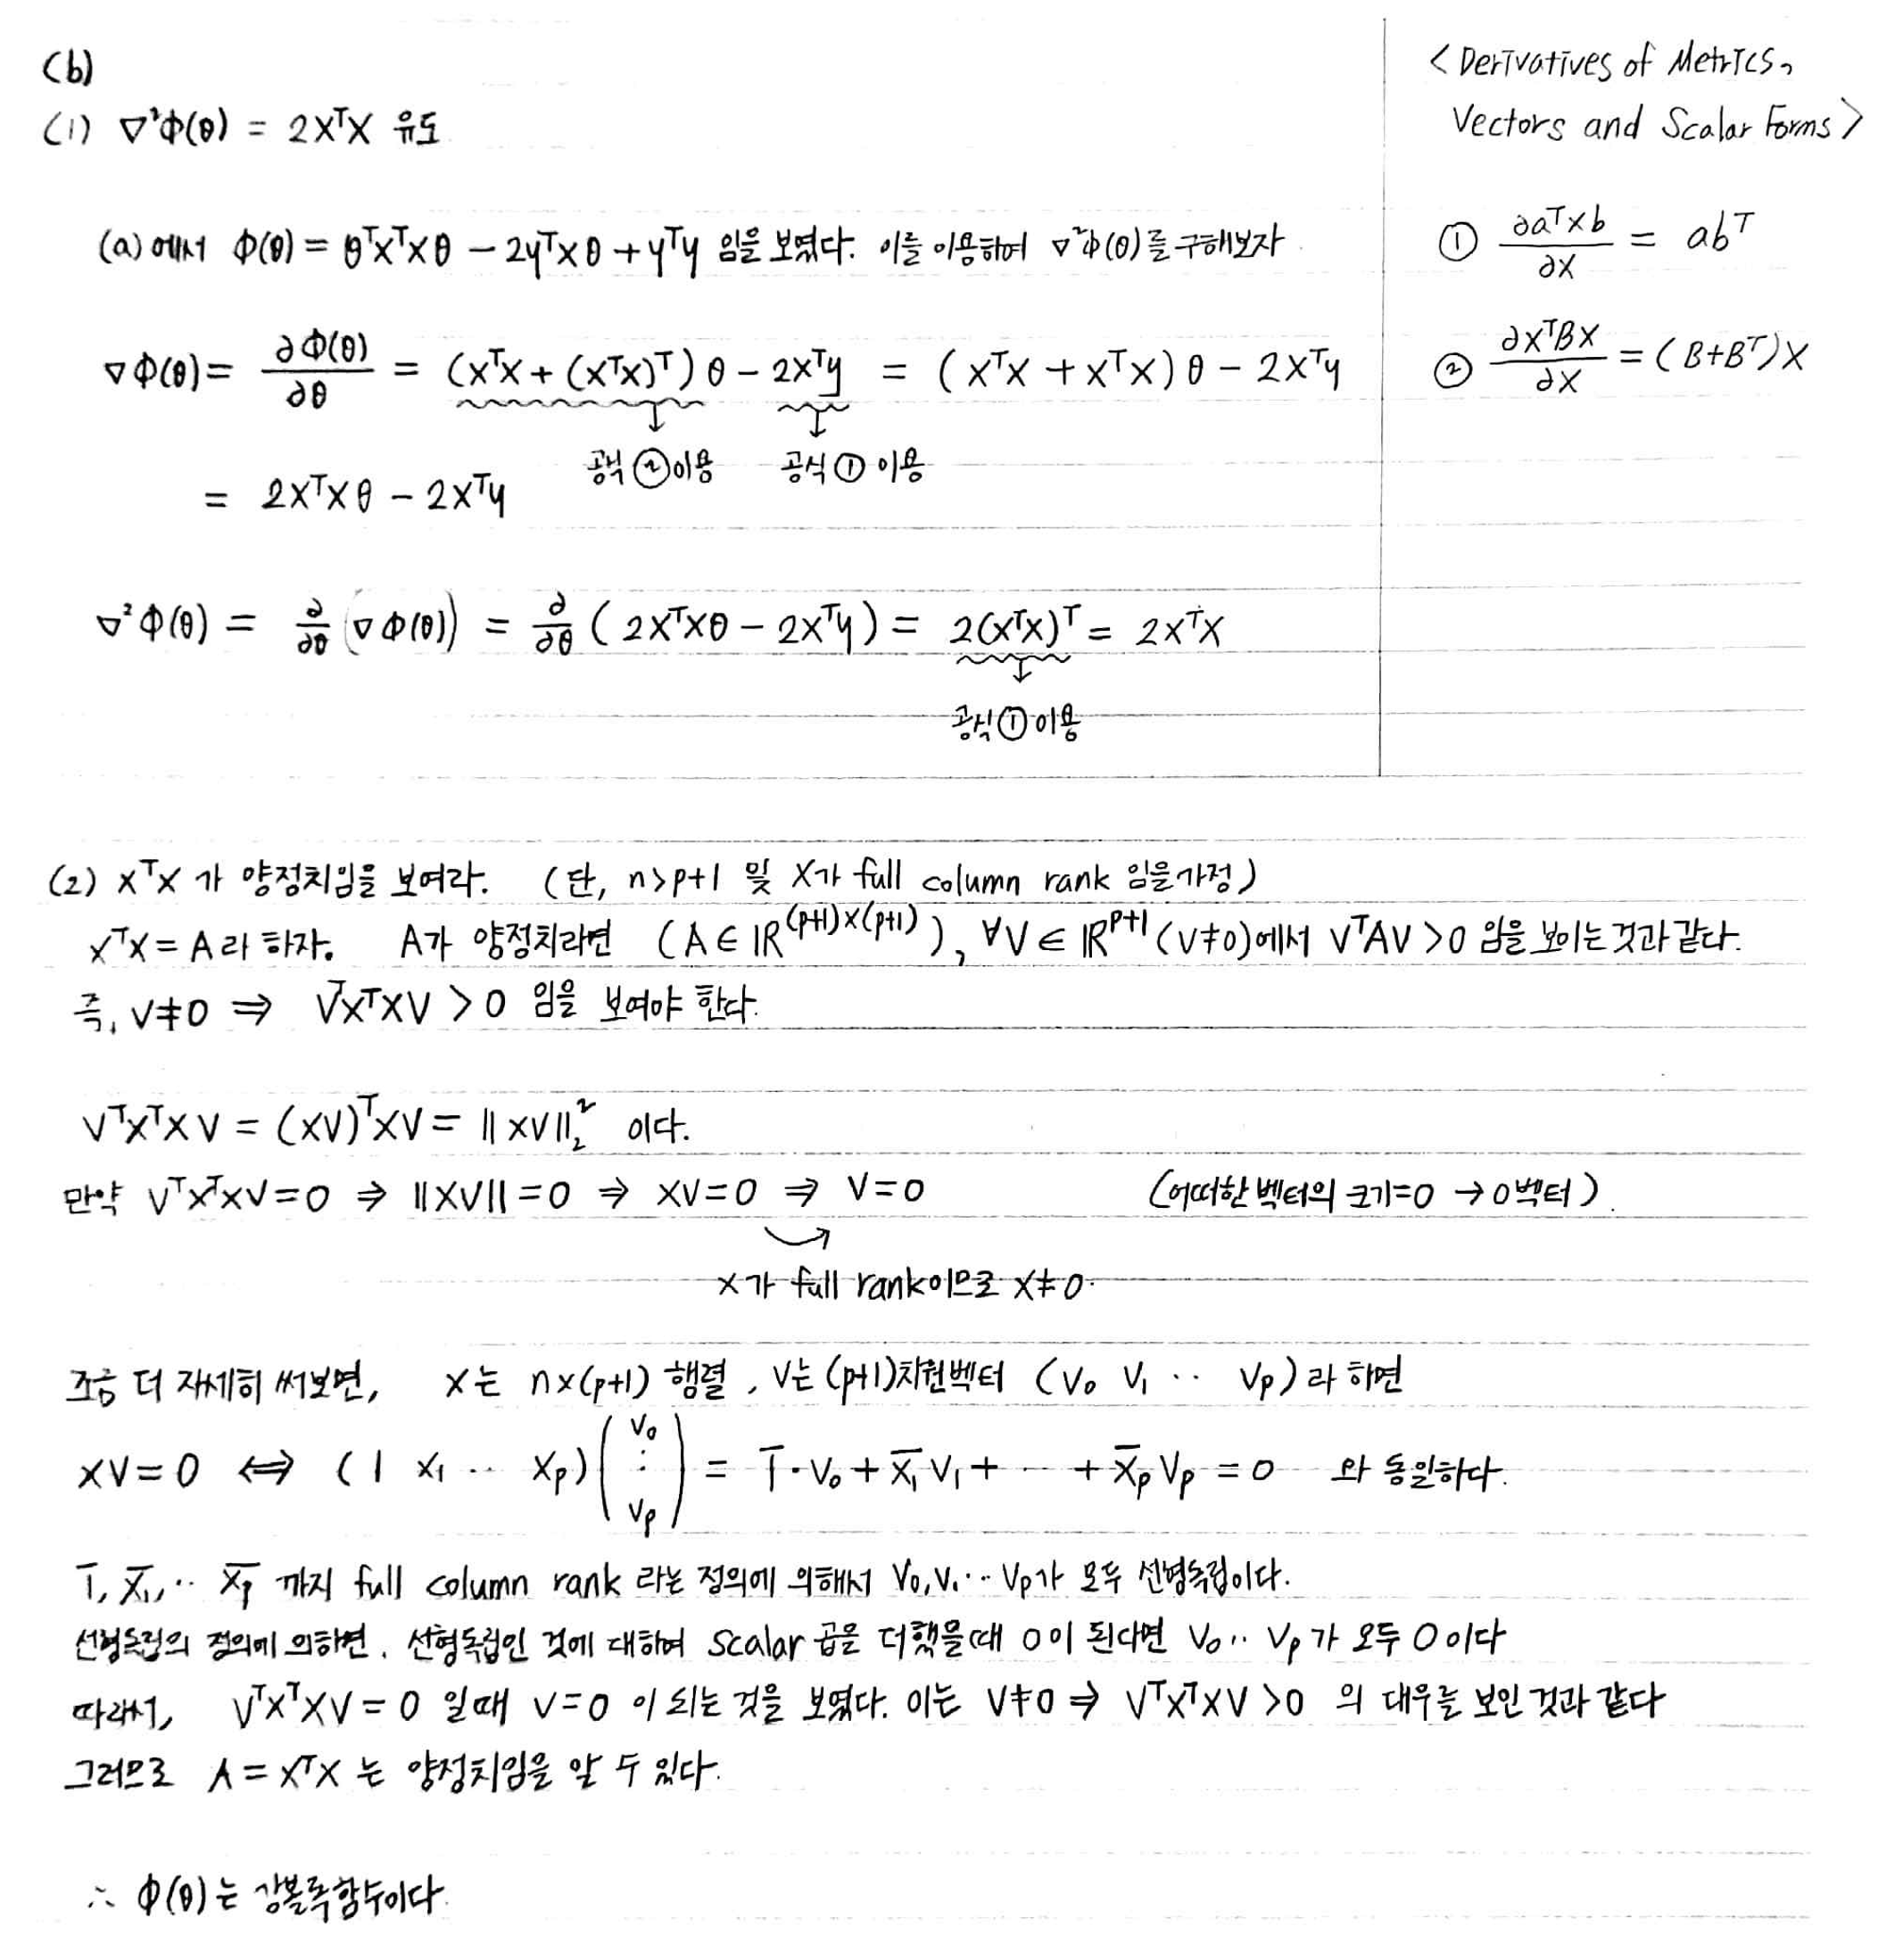 (b)
(1) ∇²Φ(θ) = 2XᵀX 유도
(a)에서 Φ(θ) = θᵀXᵀXθ - 2yᵀXθ + yᵀy 임을 보였다. 이를 이용하여 ∇²Φ(θ)를 구해보자
∇Φ(θ) = ∂Φ(θ)/∂θ = (XᵀX + (XᵀX)ᵀ)θ - 2Xᵀy = (XᵀX + XᵀX)θ - 2Xᵀy
공식 ② 이용 공식 ① 이용
= 2XᵀXθ - 2Xᵀy
∇²Φ(θ) = ∂/∂θ (∇Φ(θ)) = ∂/∂θ (2XᵀXθ - 2Xᵀy) = 2(XᵀX)ᵀ = 2XᵀX
공식 ① 이용
<Derivatives of Metrics,
Vectors and Scalar Forms>
① ∂aᵀXb/∂X = abᵀ
② ∂XᵀBX/∂X = (B+Bᵀ)X
(2) XᵀX 가 양정치임을 보여라. (단, n>p+1 및 X가 full column rank 임을 가정)
XᵀX = A 라 하자. A가 양정치라면 (A∈ℝ^(p+1)×(p+1)), ∀V∈ℝ^p+1 (V≠0)에서 VᵀAV>0 임을 보이는 것과 같다.
즉, V≠0 ⇒ VᵀXᵀXV > 0 임을 보여야 한다.
VᵀXᵀXV = (XV)ᵀXV = ‖XV‖₂² 이다.
만약 VᵀXᵀXV=0 ⇒ ‖XV‖=0 ⇒ XV=0 ⇒ V=0 (어떠한 벡터의 크기=0 → 0벡터).
X가 full rank이므로 X≠0.
조금 더 자세히 써보면, X는 n×(p+1) 행렬, V는 (p+1)차원벡터 (V₀ V₁ ‥ Vp)라 하면
XV=0 ⇔ (1 X₁ ‥ Xp)(V₀ ⋮ Vp) = 1̄·V₀ + X̄₁V₁ + ⋯ + X̄pVp = 0 와 동일하다.
1̄, X̄₁, ‥ X̄p 까지 full column rank 라는 정의에 의해서 V₀, V₁ ‥ Vp가 모두 선형독립이다.
선형독립의 정의에 의하면, 선형독립인 것에 대하여 scalar 곱을 더했을때 0이 된다면 V₀ ‥ Vp가 모두 0이다
따라서, VᵀXᵀXV=0 일때 V=0 이 되는 것을 보였다. 이는 V≠0 ⇒ VᵀXᵀXV>0 의 대우를 보인 것과 같다
그러므로 A=XᵀX 는 양정치임을 알 수 있다.
∴ Φ(θ)는 강볼록함수이다.